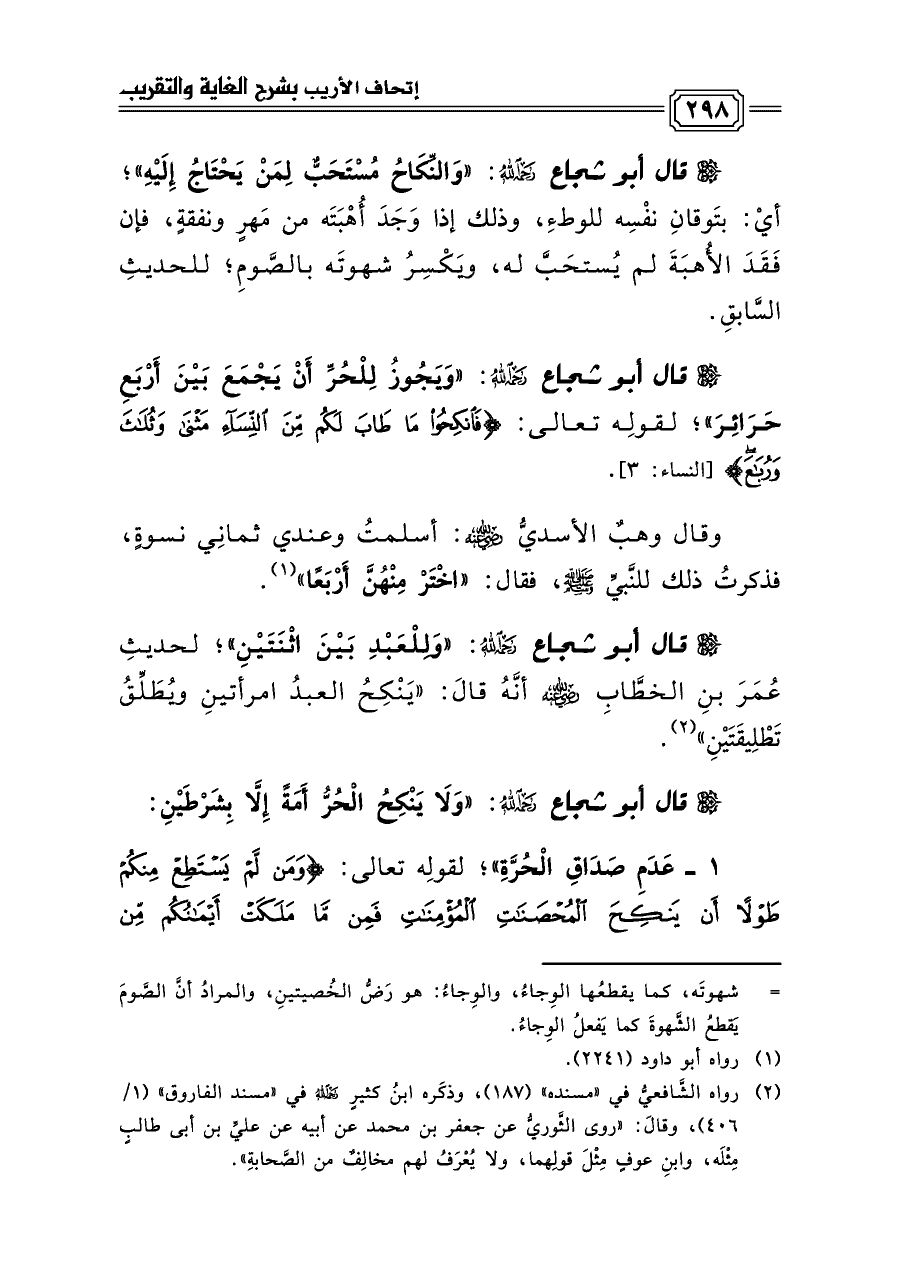 إتحاف الأريب بشرح الغاية والتقريب
٢٩٨
قال أبو شجاع رحمه الله: «وَالنِّكَاحُ مُسْتَحَبٌّ لِمَنْ يَحْتَاجُ إِلَيْهِ»؛
أيْ: بتَوقانِ نفْسِه للوطءِ، وذلك إذا وَجَدَ أُهْبَتَه من مَهرٍ ونفقةٍ، فإن
فَقَدَ الأُهبَةَ لم يُستحَبَّ له، ويَكْسِرُ شهوتَه بالصَّومِ؛ للحديثِ
السَّابقِ.
قال أبو شجاع رحمه الله: «وَيَجُوزُ لِلْحُرِّ أَنْ يَجْمَعَ بَيْنَ أَرْبَعِ
حَرَائِرَ»؛ لقولِه تعالى: ﴿فَٱنكِحُوا۟ مَا طَابَ لَكُم مِّنَ ٱلنِّسَآءِ مَثْنَىٰ وَثُلَـٰثَ
وَرُبَـٰعَ ۖ﴾ [النساء: ٣].
وقال وهبٌ الأسديُّ رضي الله عنه: أسلمتُ وعندي ثمانِي نسوةٍ،
فذكرتُ ذلك للنَّبيِّ ﷺ، فقال: «اخْتَرْ مِنْهُنَّ أَرْبَعًا»(١).
قال أبو شجاع رحمه الله: «وَلِلْعَبْدِ بَيْنَ اثْنَتَيْنِ»؛ لحديثِ
عُمَرَ بنِ الخطَّابِ رضي الله عنه أنَّهُ قالَ: «يَنْكِحُ العبدُ امرأتينِ ويُطَلِّقُ
تَطْلِيقَتَيْنِ»(٢).
قال أبو شجاع رحمه الله: «وَلَا يَنْكِحُ الْحُرُّ أَمَةً إِلَّا بِشَرْطَيْنِ:
١ - عَدَمِ صَدَاقِ الْحُرَّةِ»؛ لقولِه تعالى: ﴿وَمَن لَّمْ يَسْتَطِعْ مِنكُمْ
طَوْلًا أَن يَنكِحَ ٱلْمُحْصَنَـٰتِ ٱلْمُؤْمِنَـٰتِ فَمِن مَّا مَلَكَتْ أَيْمَـٰنُكُم مِّن
= شهوتَه، كما يقطعُها الوِجاءُ، والوِجاءُ: هو رَضُّ الخُصيتينِ، والمرادُ أنَّ الصَّومَ
يَقطعُ الشَّهوةَ كما يَفعلُ الوِجاءُ.
(١) رواه أبو داود (٢٢٤١).
(٢) رواه الشَّافعيُّ في «مسنده» (١٨٧)، وذكَره ابنُ كثيرٍ رحمه الله في «مسند الفاروق» (١/
٤٠٦)، وقالَ: «روى الثَّوريُّ عن جعفر بن محمد عن أبيه عن عليِّ بن أبى طالبٍ
مِثْلَه، وابنِ عوفٍ مِثْلَ قولِهما، ولا يُعْرَفُ لهم مخالِفٌ من الصَّحابةِ».